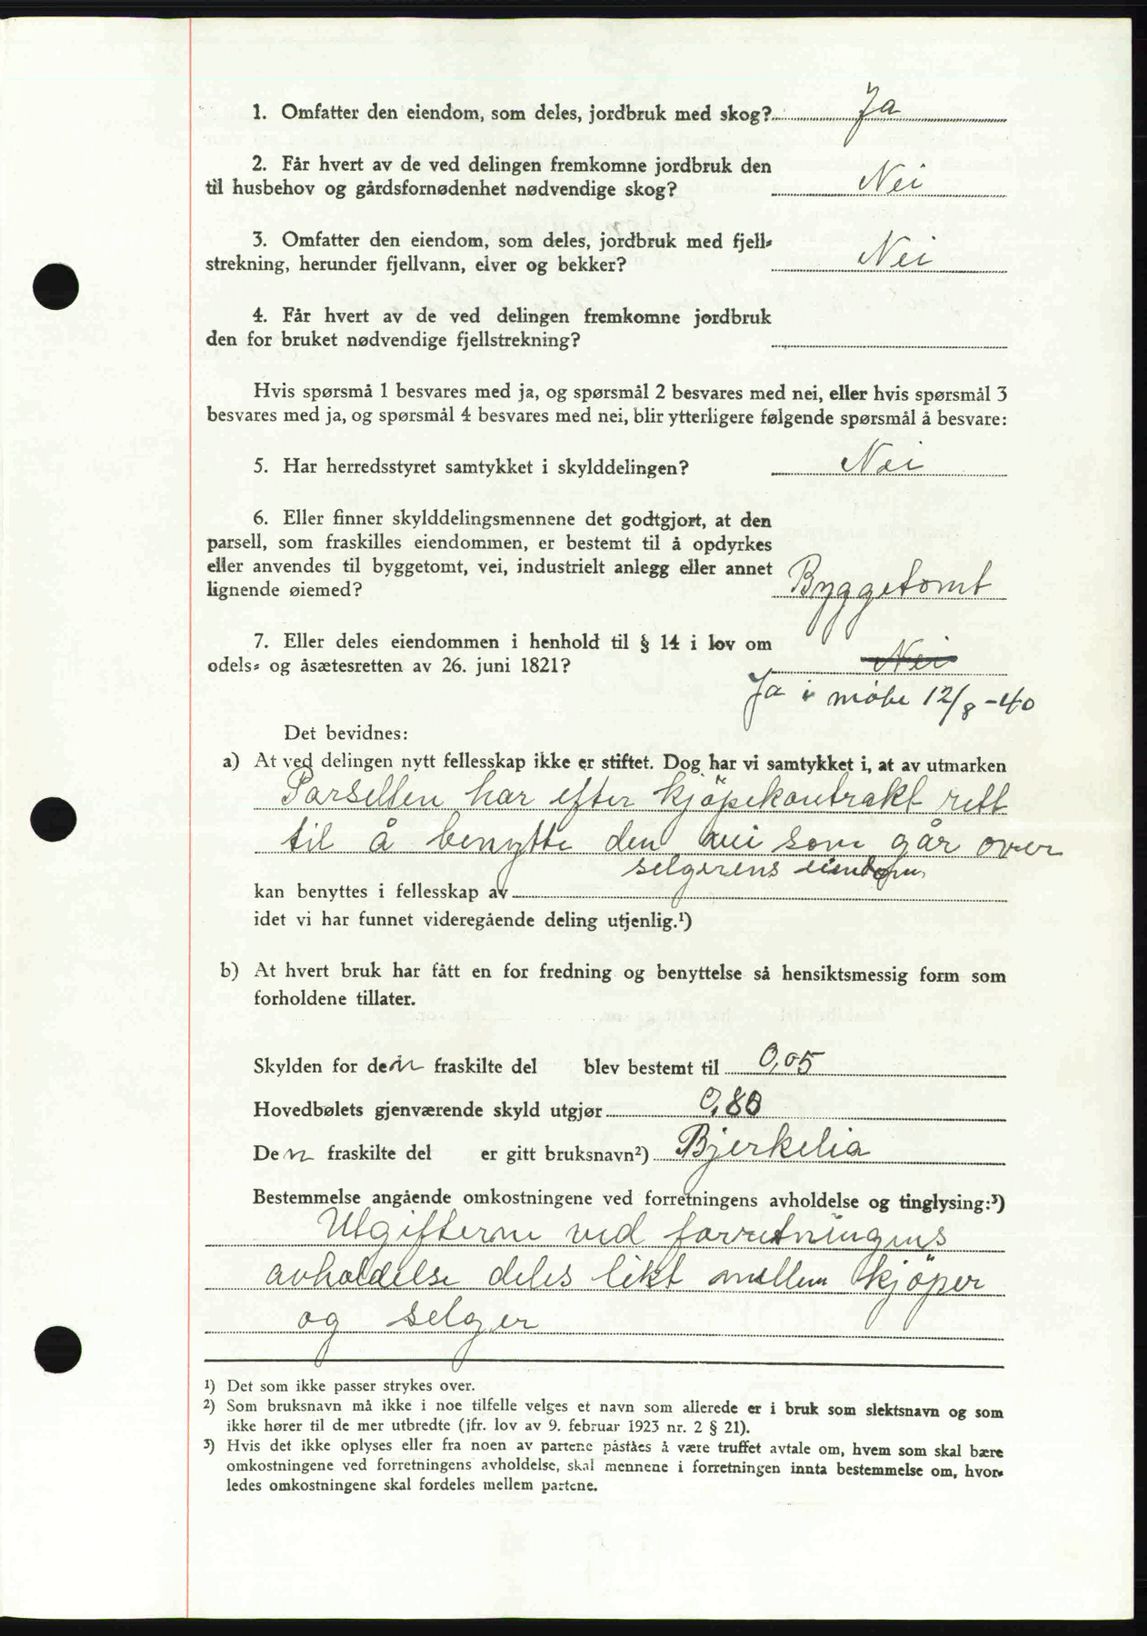 1. Omfatter den eiendom, som deles, jordbruk med skog? Ja
2. Får hvert av de ved delingen fremkomne jordbruk den
til husbehov og gårdsfornødenhet nødvendige skog? Nei
3. Omfatter den eiendom, som deles, jordbruk med fjell-
strekning, herunder fjellvann, elver og bekker? Nei
4. Får hvert av de ved delingen fremkomne jordbruk
den for bruket nødvendige fjellstrekning?
Hvis spørsmå 1 besvares med ja, og spørsmål 2 besvares med nei, eller hvis spørsmål 3
besvares med ja, og spørsmål 4 besvares med nei, blir ytterligere følgende spørsmål å besvare:
5. Har herredsstyret samtykket i skylddelingen? Nei
6. Eller finner skylddelingsmennene det godtgjort, at den
parsell, som fraskilles eiendommen, er bestemt til å opdyrkes
eller anvendes til byggetomt, vei, industrielt anlegg eller annet
lignende øiemed? Byggetomt
7. Eller deles eiendommen i henhold til § 14 i lov om
odels- og åsætesretten av 26. juni 1821? Nei
Ja i møte 12/8-40
Det bevidnes:
a) At ved delingen nytt fellesskap ikke er stiftet. Dog har vi samtykket i, at av utmarken
Parsellen har efter kjöpekontrakt rett
til å benytte den vei som går over
selgerens eiendom
kan benyttes i fellesskap av
idet vi har funnet videregående deling utjenlig.¹)
b) At hvert bruk har fått en for fredning og benyttelse så hensiktsmessig form som
forholdene tillater.
Skylden for den fraskilte del blev bestemt til 0,05
Hovedbølets gjenværende skyld utgjør 0,80
Den fraskilte del er gitt bruksnavn²) Bjerkelia
Bestemmelse angående omkostningene ved forretningens avholdelse og tinglysing:³)
Utgifterne ved forretningens
avholdelse deles likt mellem kjöper
og selger
¹) Det som ikke passer strykes over.
²) Som bruksnavn må ikke i noe tilfelle velges et navn som allerede er i bruk som slektsnavn og som
ikke hører til de mer utbredte (jfr. lov av 9. februar 1923 nr. 2 § 21).
³) Hvis det ikke oplyses eller fra noen av partene påståes å være truffet avtale om, hvem som skal bære
omkostningene ved forretningens avholdelse, skal mennene i forretningen innta bestemmelse om, hvor-
ledes omkostningene skal fordeles mellem partene.